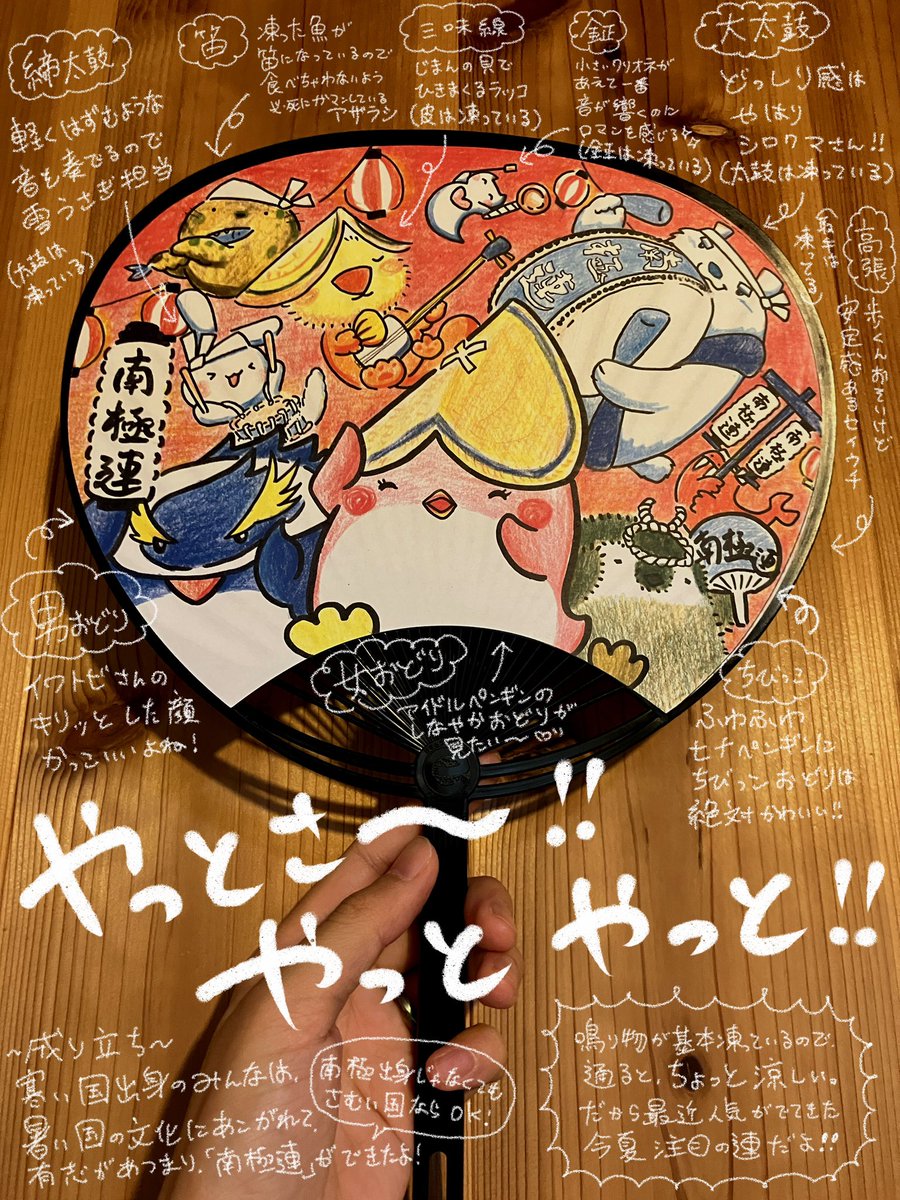 締太鼓
軽くはずむような
音を奏でるので
雪うさぎ担当
(太鼓は
凍っている)
笛
凍った魚が
笛になっているので
食べちゃわないよう
必死にガマンしている
アザラシ
三味線
じまんの貝で
ひきまくるラッコ
(皮は凍っている)
鉦
小さいクリオネが
あえて一番
音が響くのに
ロマンを感じる
(鉦は凍っている)
大太鼓
どっしり感は
やはり
シロクマさん!!
(太鼓は凍っている)
高張
歩くんおそいけど
安定感あるセイウチ
凍ってる)
南極連
南極連
南極連
南極連
南極連
男おどり
イワトビさんの
キリッとした顔
かっこいいよね!
女おどり
アイドルペンギンの
しなやかおどりが
見たい〜
ちびっこ
ふわふわ
ヒナペンギンに
ちびっこおどりは
絶対かわいい!!
やっとさ〜!!
やっと やっと!!
〜成り立ち〜
寒い国出身のみんなは、
暑い国の文化にあこがれて、
有志があつまり、「南極連」ができたよ!
南極出身じゃなくても
さむい国ならOK!
鳴り物が基本凍っているので、
通ると、ちょっと涼しい。
だから最近人気がでてきた
今夏注目の連だよ!!